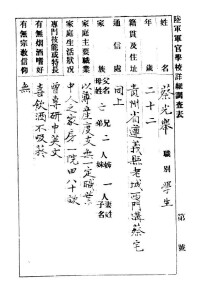 陸軍軍官學校詳細調查表
姓名 蔡光舉 職別 學生 第 號
年歲 二十二
籍貫及住址 貴州省遵義縣老城西門溝蔡宅
通信處 同上
家族 父名 母姓 兄二人 弟 姊一人 妹 妻姓 子名
家庭主要職業 以薄產度支無一定職業
家庭生活狀况 中人之家房一院四八十欵
專門技能或特長 曾專研中英文
有無烟酒嗜好 喜飲酒不吸菸
有無宗教信仰 無